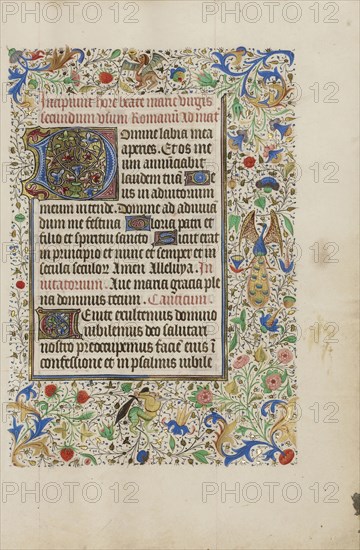 Incipiunt hore beate marie virgis
secundum usum Romanū Ad mat
Domine labia mea
aperies. Et os me
um annunciabit
laudem tuā De
us in adiutorium
meum intende. Domine ad adiuuā
dum me festina Gloria patri et
filio et spiritui sancto Sicut erat
in principio et nunc et semper et in
secula seculor Amen Alleluya. In
uitatorium. Aue maria gracia ple
na dominus tecum. Canticum
Uenite exultemus domino
iubilemus deo salutari
nostro preoccupemus faciē eius ī
confessione et in psalmis iubile